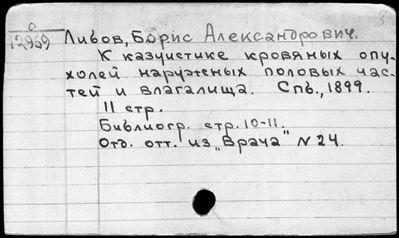 0
12959
Львов, Борис Александрович.
К казуистике кровяных опу-
холей наружных половых час-
тей и влагалища. Спб., 1899.
11 стр.
Библиогр. стр. 10-11.
Отд. отт. из „Врача" N 24.